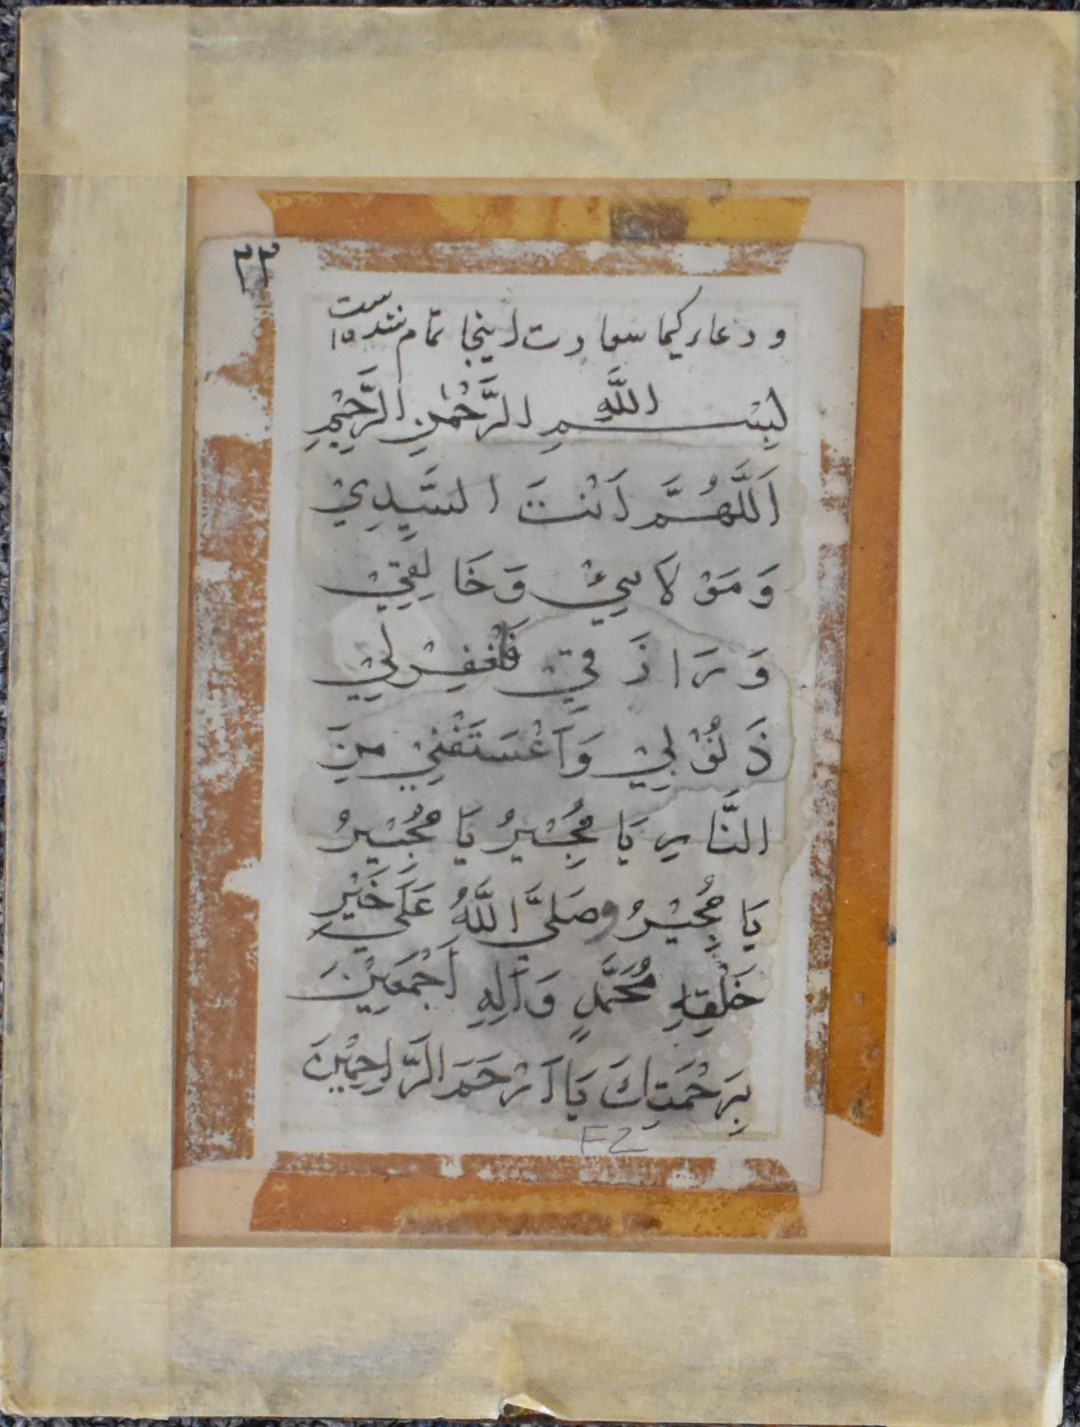 ٣٣
و دعاء کیما سعادت اینجا تمام شدست
١٥
بِسْمِ اللَّهِ الرَّحْمٰنِ الرَّحِيْمِ
اَللَّهُمَّ اَنْتَ السَّيِّدِيْ
وَمَوْلَائِيْ وَخَالِقِيْ
وَرَازَقِيْ فَاغْفِرْلِيْ
ذَلُوْبِيْ وَاَعْسَتَفْنِيْ مِنَ
النَّارِ يَا مُجِيْرُ يَا مُجِيْرُ
يَا مُجِيْرُ وصَلَيَّ اللَّهُ عَلَي خَيْرِ
خَلْقِهِ مُحَمَّدٍ وَآلِهِ اَجْمَعِيْنَ
بِرَحْمَتِكَ يَا اَرْحَمَ الرَّاحِمِيْنَ
F2